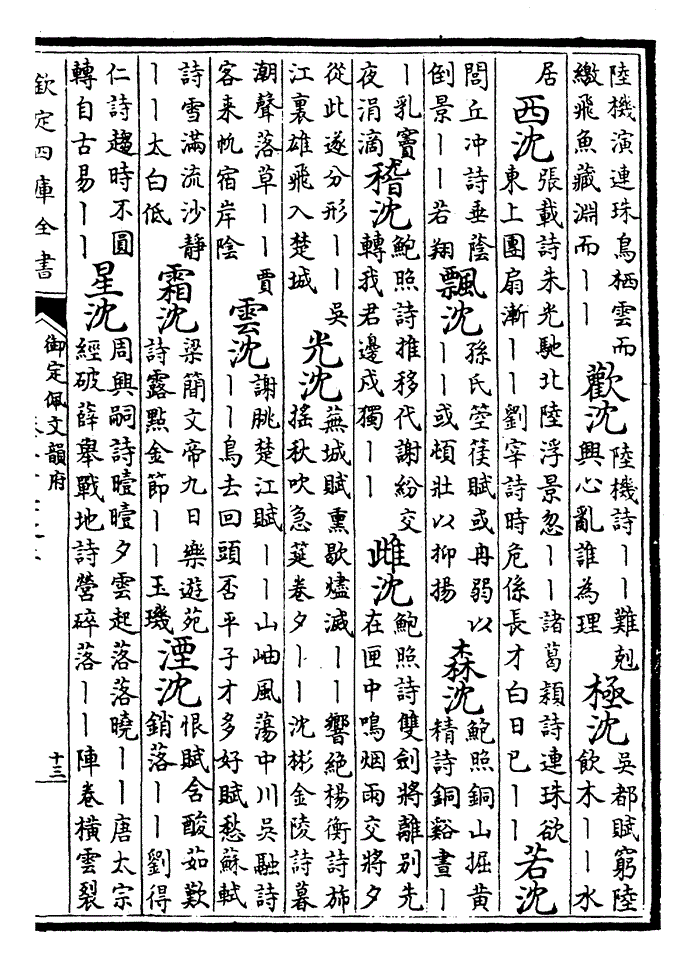 陸機演連珠鳥栖雲而
繳飛魚藏淵而｜｜
歡沈
陸機詩｜｜難剋
興心亂誰為理
極沈
吳都賦窮陸
飲木｜｜水
居
西沈
張載詩朱光馳北陸浮景忽｜｜諸葛穎詩連珠欲
東上團扇漸｜｜劉宰詩時危係長才白日已｜｜
若沈
閭丘冲詩垂蔭
倒景｜｜若翔
飄沈
孫氏箜篌賦或冉弱以
｜｜或頓壯以抑揚
森沈
鮑照銅山掘黄
精詩銅谿晝｜
｜乳竇
夜涓滴
稽沈
鮑照詩推移代謝紛交
轉我君邊戍獨｜｜
雌沈
鮑照詩雙劍將離别先
在匣中鳴烟雨交將夕
從此遂分形｜｜吳
江裏雄飛入楚城
光沈
蕪城賦熏歇燼滅｜｜響絶楊衡詩斾
搖秋吹急筵卷夕｜｜沈彬金陵詩暮
潮聲落草｜｜賈
客来帆宿岸陰
雲沈
謝朓楚江賦｜｜山岫風蕩中川吳融詩
｜｜鳥去回頭否平子才多好賦愁蘇軾
詩雪滿流沙静
｜｜太白低
霜沈
梁簡文帝九日樂遊苑
詩露點金節｜｜玉璣
湮沈
恨賦含酸茹歎
銷落｜｜劉得
仁詩趨時不圓
轉自古易｜｜
星沈
周興嗣詩曀曀夕雲起落落曉｜｜唐太宗
經破薛舉戰地詩營碎落｜｜陣卷横雲裂
欽定四庫全書
御定佩文韻府
十三